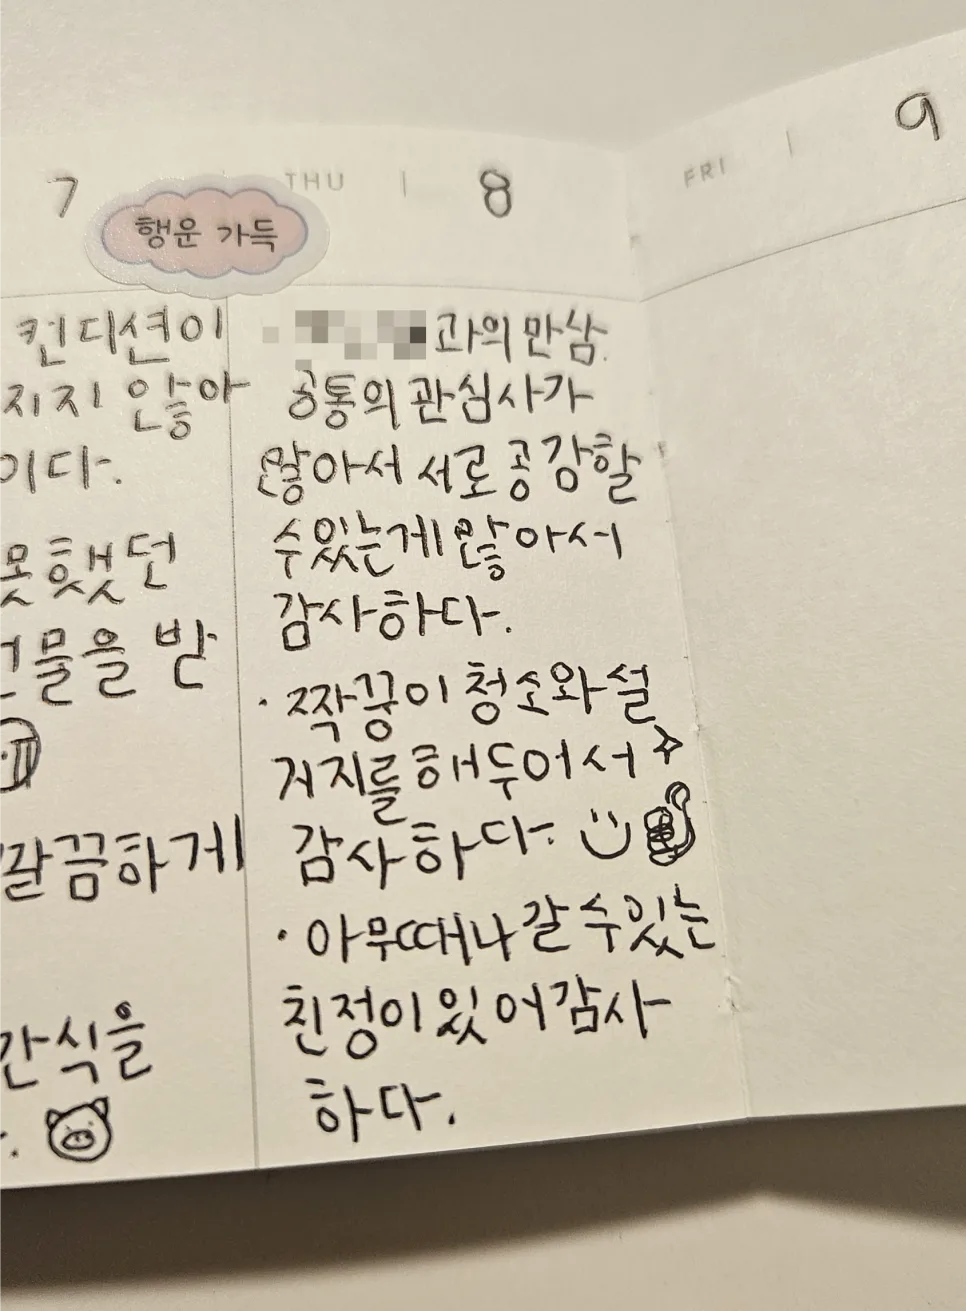 7
행운 가득
THU | 8
FRI | 9
컨디션이
지지 않아
이다.
못했던
물을 받
깔끔하게
간식을
과의 만남.
공통의 관심사가
많아서 서로 공감할
수있는게 많아서
감사하다.
· 짝꿍이 청소와 설
거지를 해두어서
감사하다.
· 아무때나 갈 수있는
친정이 있어 감사
하다.